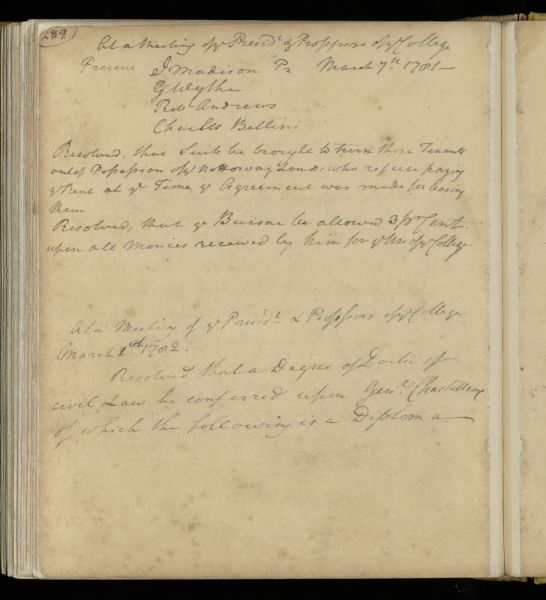 289
At a Meeting of ye Presidt & Professors of ye College
Present J Madison Pr March 7th 1781
G Wythe
Rob Andrews
Charles Bellini
Resolved, that Suits be brought to turn those Tenants
out of Possession of ye Nottoway Lands who refuse paying
ye Rent at ye Time ye Agreement was made for leasing
them
Resolved, that ye Bursar be allowed 3 pr Cent.
upon all Monies received by him for ye Use of ye College.
At a Meeting of ye Presidt & Professors of ye College
March 1st 1782.
Resolved that a Degree of Doctr of
civil Law be conferred upon Genl Chastellux
of which the following is a Diploma